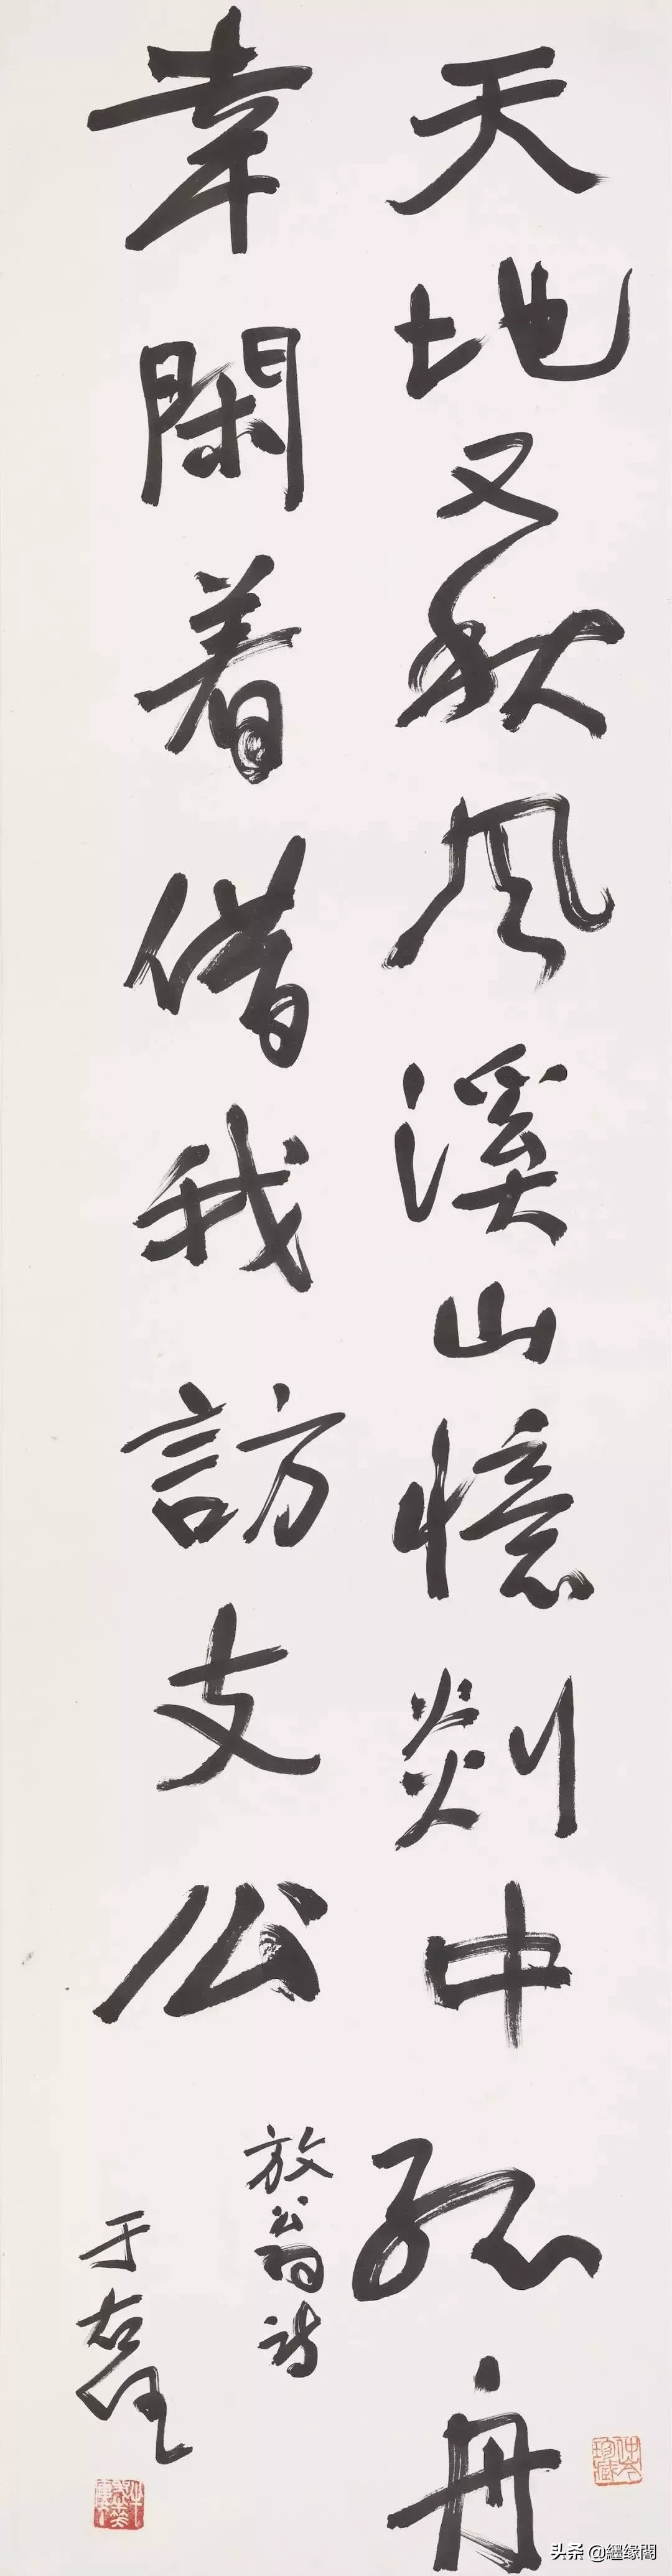 天地又秋風溪山憶剡中孤舟
幸閑着借我訪支公
放翁詩
于右任
头条 @纒缘閣